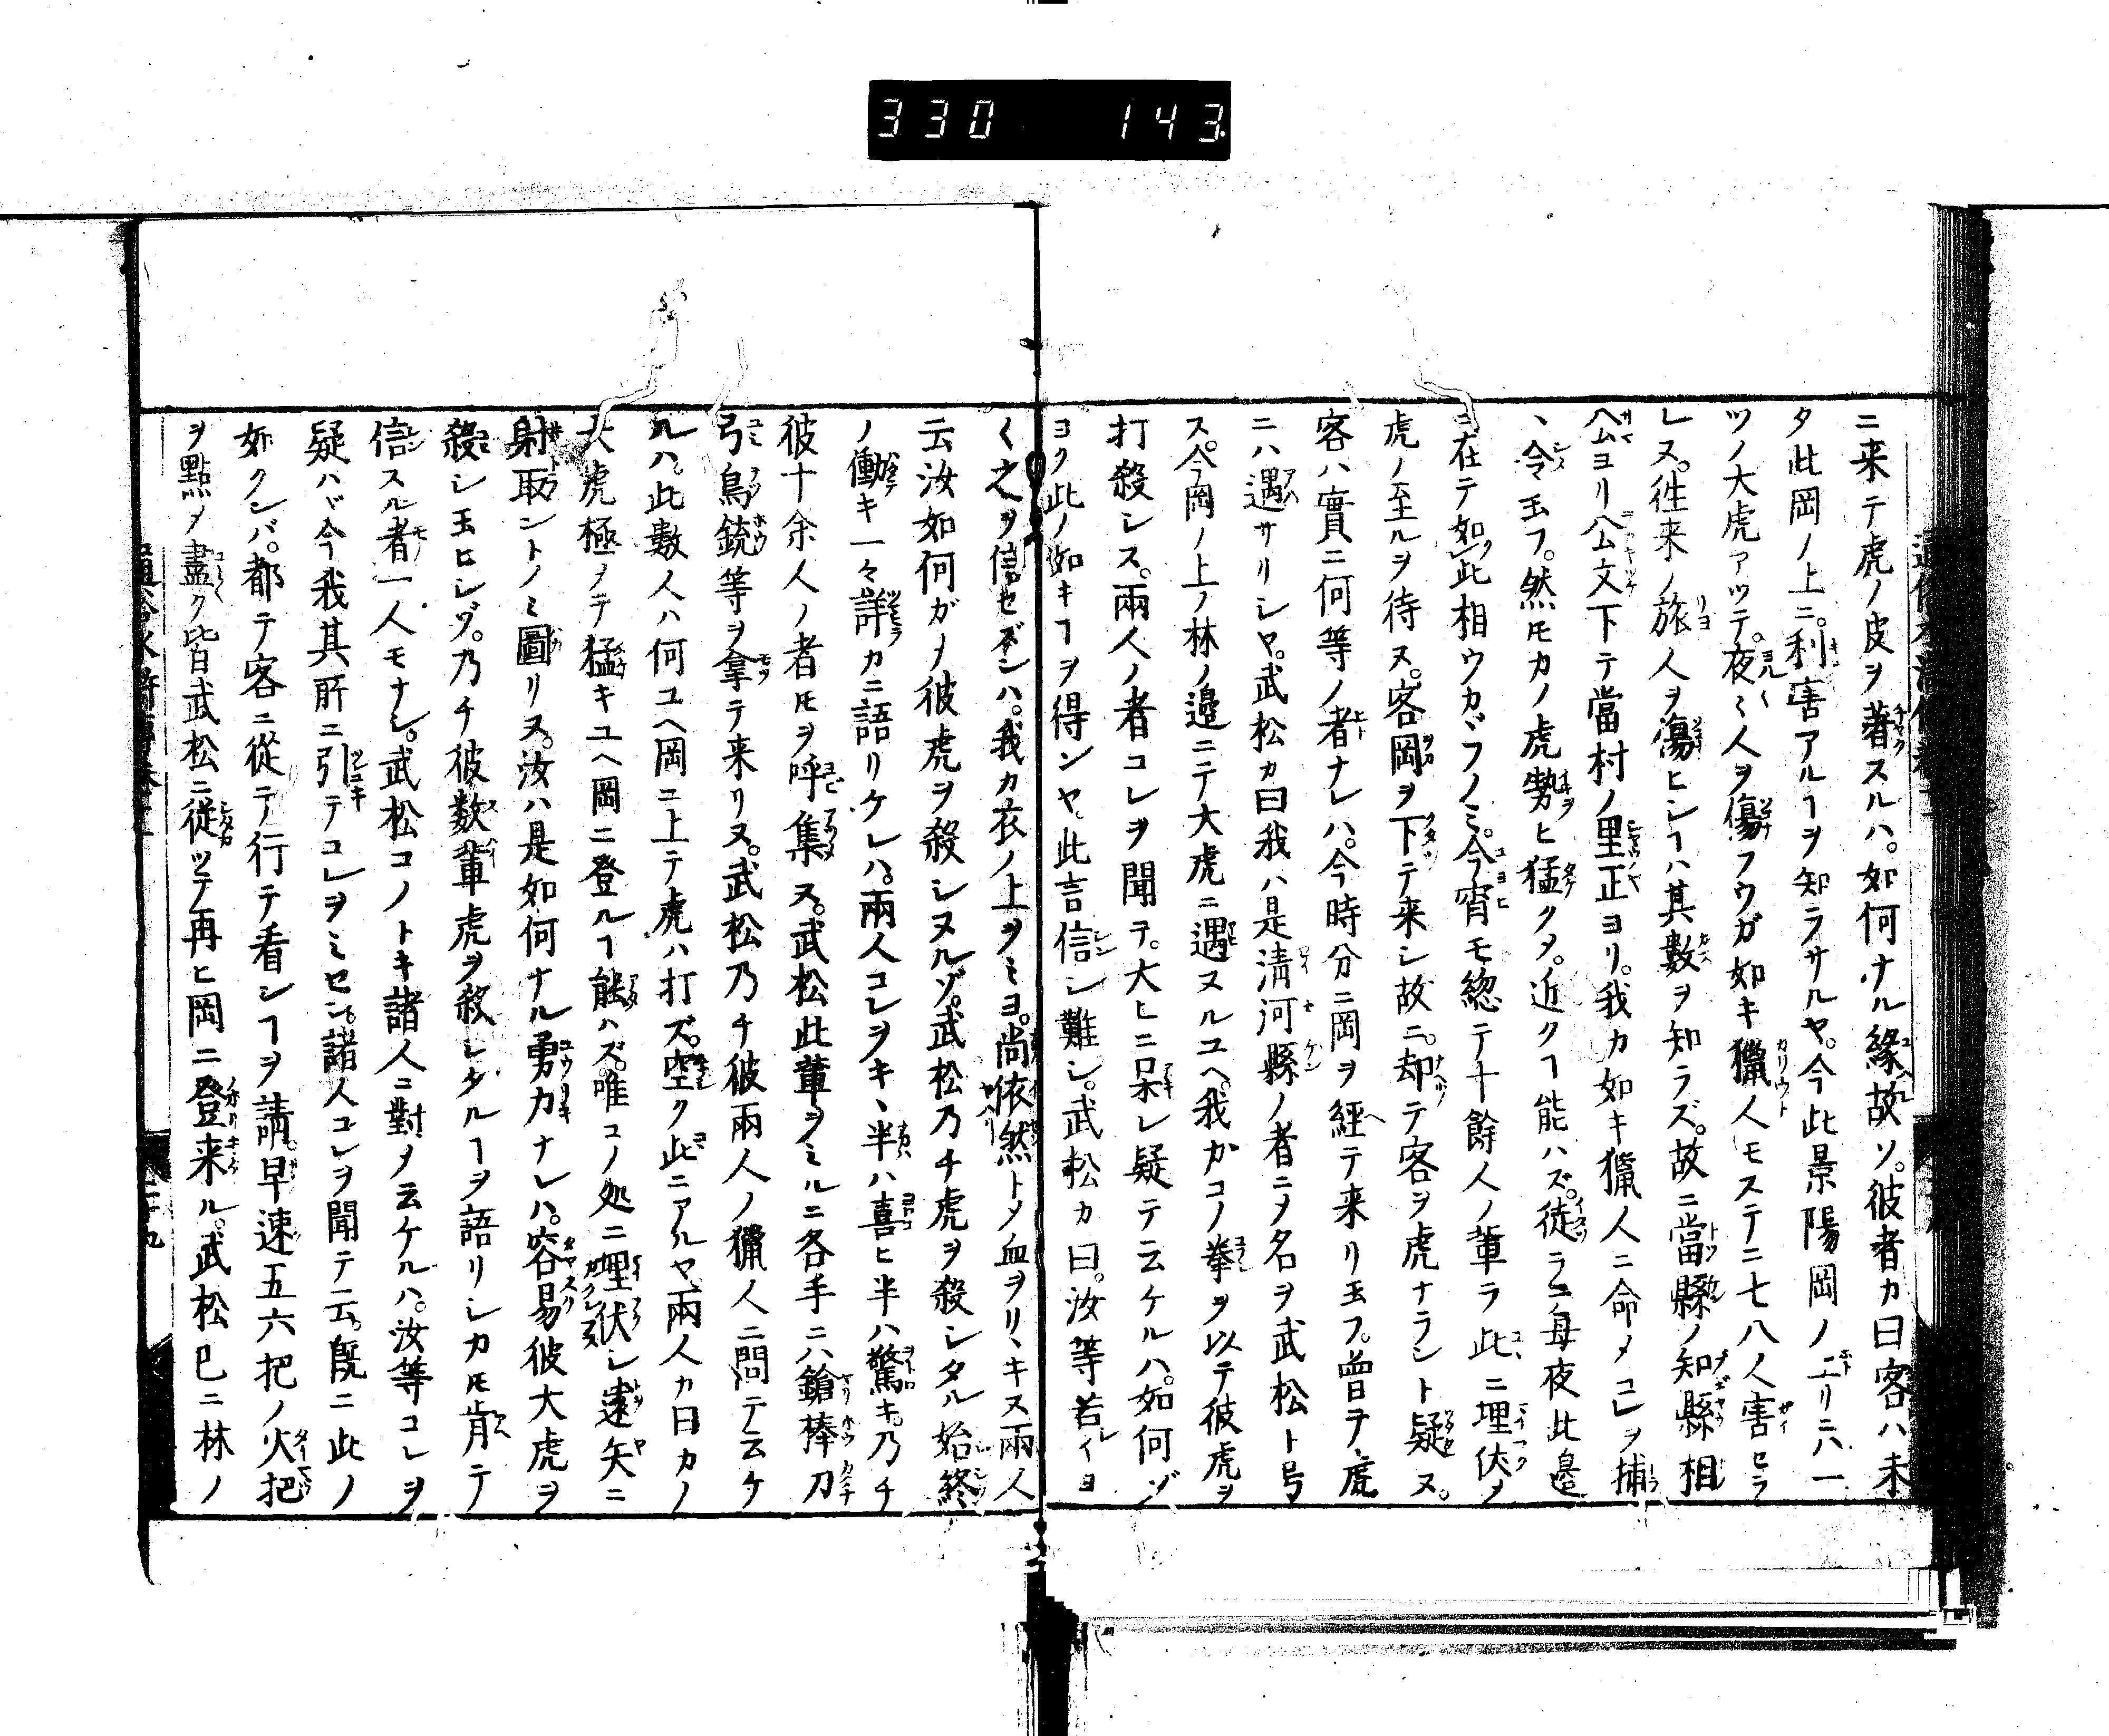 330 143
ニ来テ虎ノ皮ヲ著スルハ。如何ナル縁故ソ。彼者カ曰客ハ未
タ此岡ノ上ニ。利害アルヿヲ知ラサルヤ。今此景陽岡ノ上リニハ一
ツノ大虎アツテ。夜〻人ヲ傷フウガ如キ獵人モステニ七八人害セラ
レヌ。徃来ノ旅人ヲ傷ヒシヿハ其數ヲ知ラズ。故ニ當縣ノ知縣相
公ヨリ公文下テ當村ノ里正ヨリ。我カ如キ獵人ニ命メコレヲ捕
ヽ令玉フ。然𪜈カノ虎勢ヒ猛クタ。近クヿ能ハズ。徒ラニ毎夜此邉
ニ在テ如此相ウカヾフノミ。今宵モ総テ十餘人ノ輩ラ此ニ埋伏ノ
虎ノ至ルヲ待ス。客岡ヲ下テ来シ故ニ。却テ客ヲ虎ナラント疑ヌ。
客ハ實ニ何等ノ者ナレハ。今時分ニ岡ヲ經テ来リ玉フ。曽テ虎
ニハ遇サリシヤ。武松カ曰我ハ是清河縣ノ者ニメ名ヲ武松ト号
ス。今岡ノ上ノ林ノ邉ニテ大虎ニ遇ヌルユヘ。我カコノ拳ヲ以テ彼虎ヲ
打殺シス。兩人ノ者コレヲ聞テ。大ヒニ呆レ疑テ云ケルハ。如何ゾ
ヨク此ノ如キヿヲ得ンヤ。此言信シ難シ。武松カ曰。汝等若イヨ
〱之ヲ信セズンハ。我カ衣ノ上ヲミヨ。尚依然トメ血ヲリヽキヌ兩人
云汝如何ガノ彼虎ヲ殺シヌルゾ。武松乃チ虎ヲ殺シタル始終
ノ働キ一々詳カニ語リケレハ。兩人コレヲキヽ半ハ喜ヒ半ハ驚キ。乃チ
彼十余人ノ者𪜈ヲ呼集ス。武松此輩ヲミルニ各手ニハ鎗棒刀
弓鳥銃等ヲ拿テ来リヌ。武松乃チ彼兩人ノ獵人ニ問テ云ケ
ルハ。此數人ハ何ユヘ岡ニ上テ虎ハ打ズ。空ク此ニアルヤ、兩人カ曰カノ
大虎極メテ猛キユヘ岡ニ登ルヿ能ハズ。唯コノ処ニ埋伏シ遠矢ニ
射取ントノミ圖リヌ。汝ハ是如何ナル勇力ナレハ。容易彼大虎ヲ
殺シ玉ヒシゾ。乃チ彼数輩虎ヲ殺シタルヿヲ語リシカ𪜈肯テ
信スル者一人モナシ。武松コノトキ諸人ニ對ノ云ケルハ。汝等コレヲ
疑ハヾ今我其所ニ引テコレヲミセン。諸人コレヲ聞テ云。既ニ此ノ
如クンバ。都テ客ニ從テ行テ看シヿヲ請。早速五六把ノ火把
ヲ點ノ盡ク皆武松ニ従ツテ再ヒ岡ニ登来ル。武松已ニ林ノ